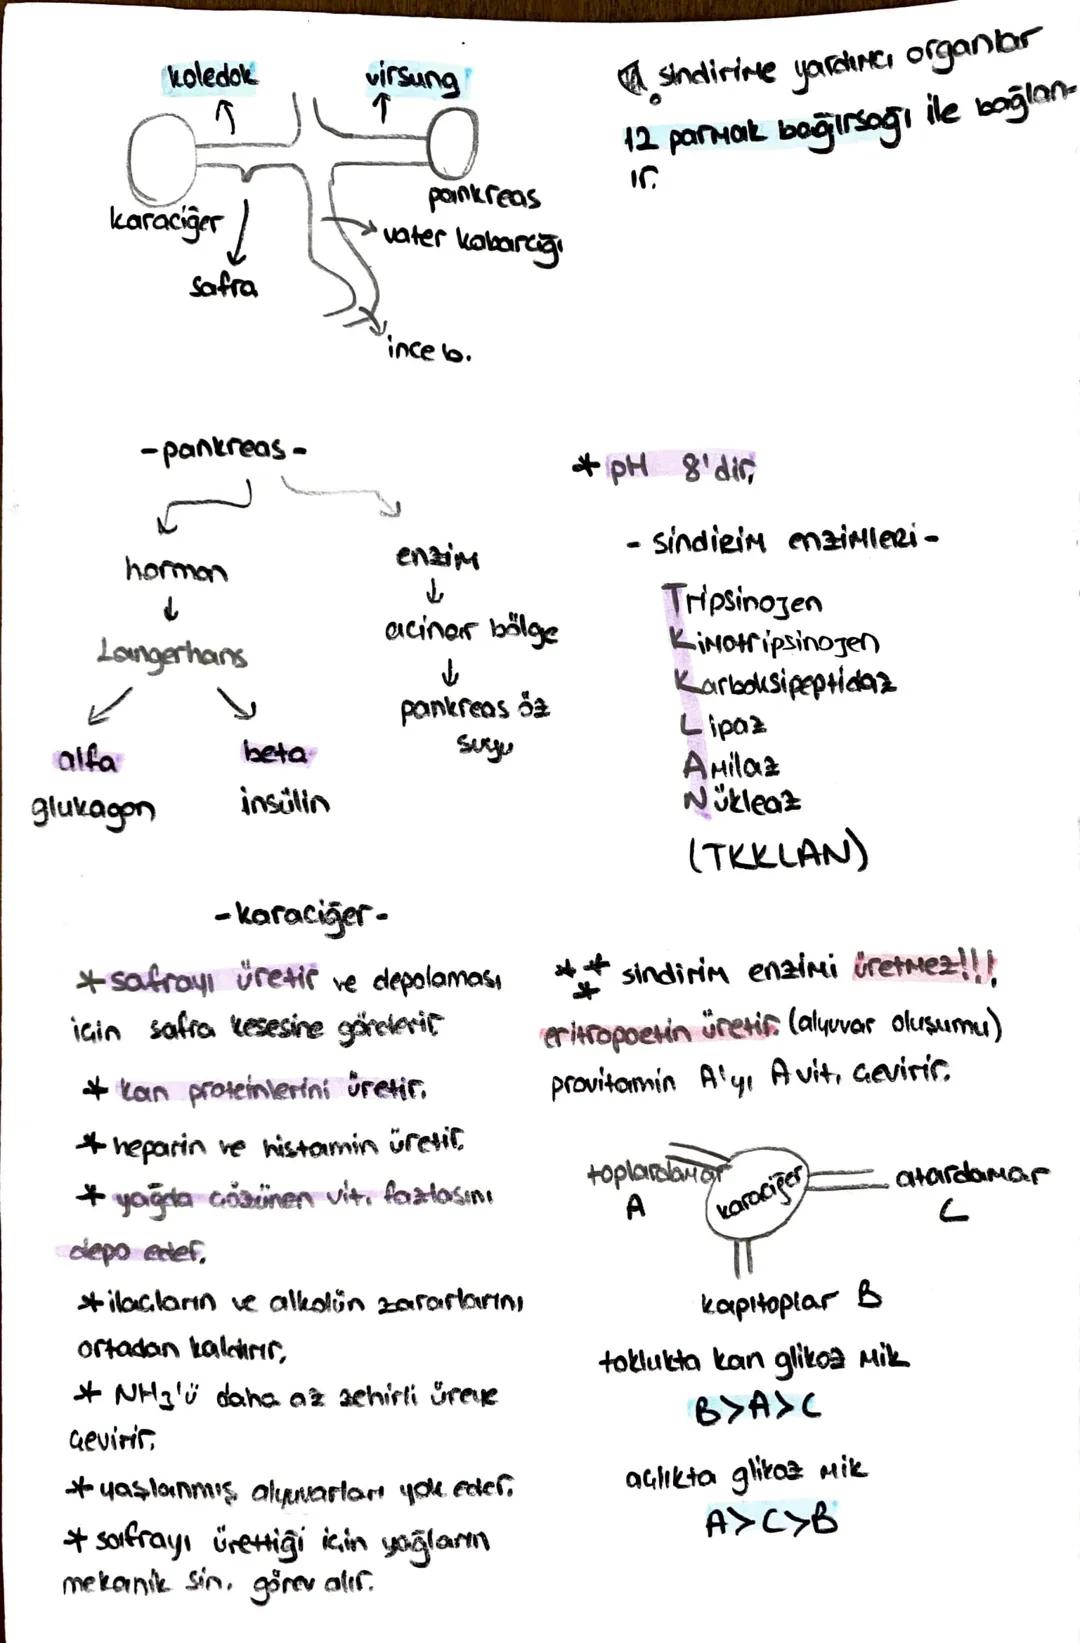 koledok
virsung
sindirime yardımcı organlar
12 parmak bağırsağı ile bağlan-
ır.
karaciğer
pankreas
vater kabarcığı
safra
ince b.
- pankreas -
* pH 8'dir.
hormon
enzim
- sindirim enzimleri -
Langerhans
acinar bölge
pankreas öz
suyu
alfa
beta
glukagon
insülin
Tripsinojen
Kimotripsinojen
Karboksipeptidaz
Lipaz
Amilaz
Nükleaz
(TKKLAN)
- karaciğer -
* safrayı üretir ve depolaması
için safra kesesine gönderir
* kan proteinlerini üretir.
* heparin ve histamin üretir.
* yağda çözünen vit. fazlasını
depo eder.
* ilaçların ve alkolün zararlarını
ortadan kaldırır.
* NH3'ü daha az zehirli üreye
çevirir.
* yaşlanmış alyuvarları yok eder.
* safrayı ürettiği için yağların
mekanik sin. görev alır.
*** sindirim enzimi üretmez!!!
eritropoetin üretir. (alyuvar oluşumu)
provitamin A'yı A vit. çevirir.
toplardamar
A
karaciğer
atardamar
C
kapıtoplar B
toklukta kan glikoz mik
B>A>C
açlıkta glikoz mik
A>C>B